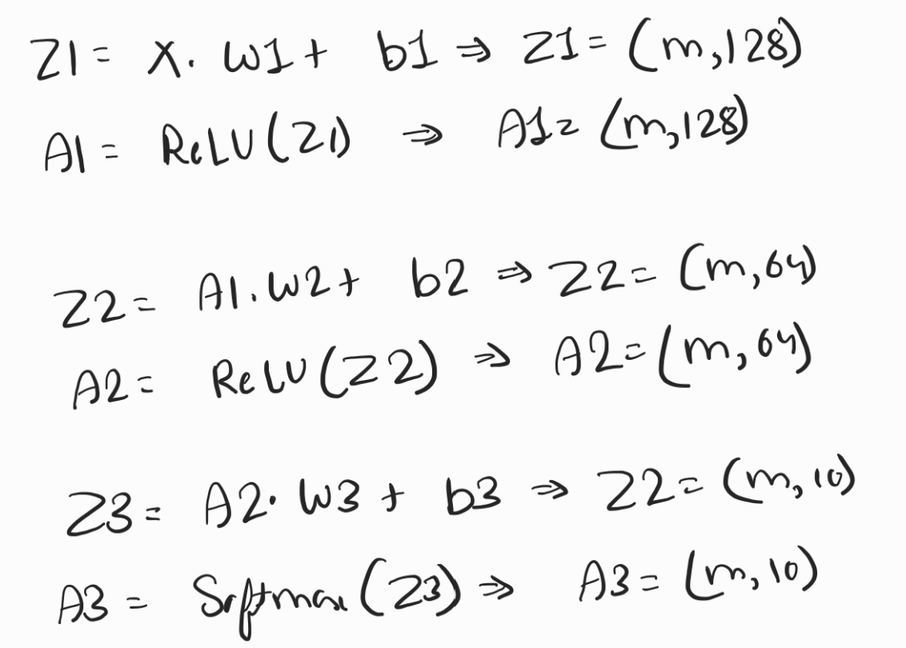 Z1 = X. W1 + b1 ⇒ Z1 = (m,128)
A1 = ReLU(Z1) ⇒ A1 = (m,128)
Z2 = A1.W2 + b2 ⇒ Z2 = (m,64)
A2 = ReLU(Z2) ⇒ A2 = (m,64)
Z3 = A2. W3 + b3 ⇒ Z2 = (m,10)
A3 = Softmax(Z3) ⇒ A3 = (m,10)